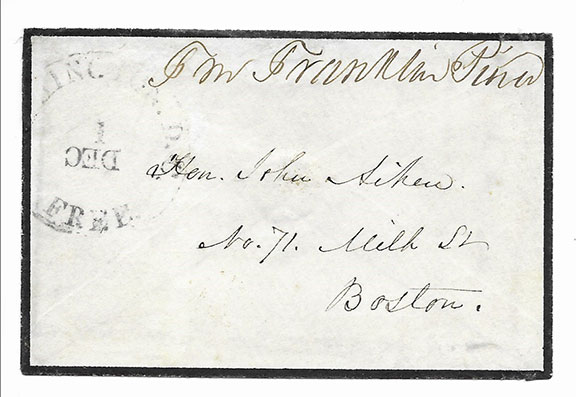 Fm Franklin Pierce
D.
1
DEC
FREE
Hon. John Aiken.
No. 71. Milk St
Boston.